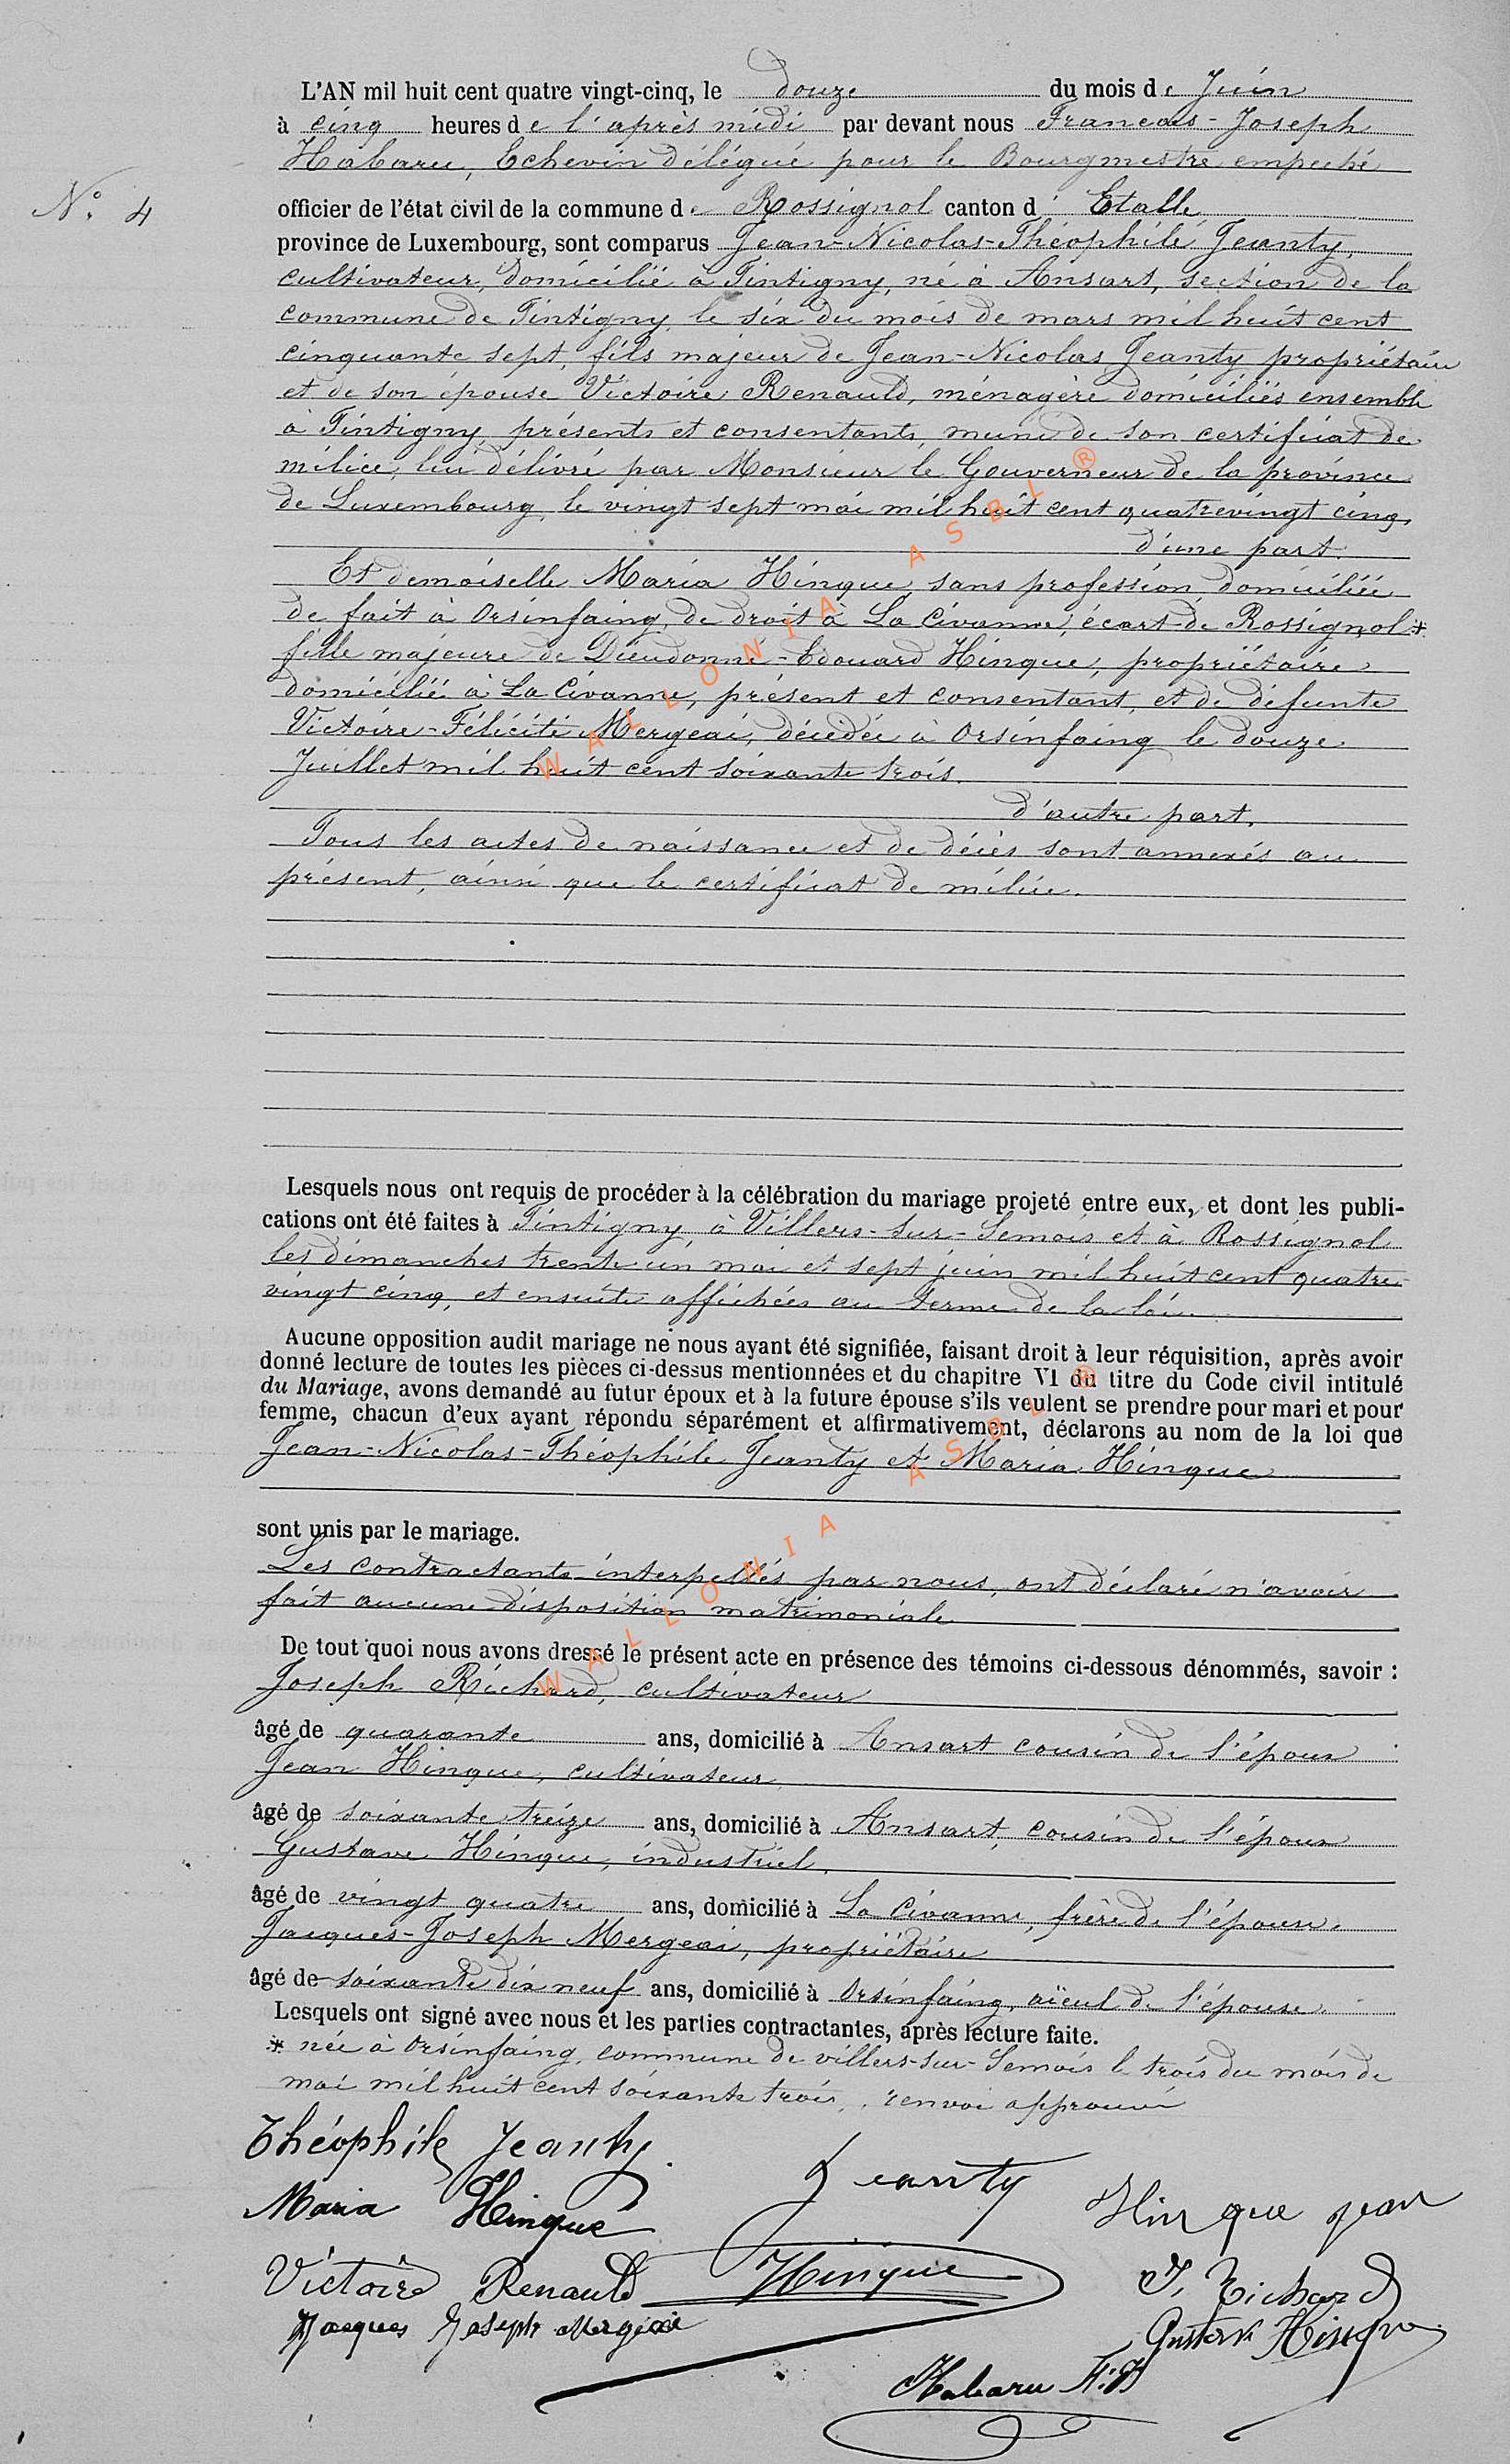 L'AN mil huit cent quatre vingt-cinq, le douze du mois de Juin
à cinq heures de l'après midi par devant nous Francois-Joseph
Habaru, Echevin délégué pour le Bourgmestre empeché
N° 4
officier de l'état civil de la commune de Rossignol canton d' Etalle
province de Luxembourg, sont comparus Jean-Nicolas-Théophile Jeanty,
cultivateur, domicilié à Tintigny, né à Ansart, section de la
commune de Tintigny, le six du mois de mars mil huit cent
cinquante sept, fils majeur de Jean-Nicolas Jeanty, propriétaire
et de son épouse Victoire Renauld, ménagère domiciliés ensemble
à Tintigny, présents et consentants, muni de son certificat de
milice, lui délivré par Monsieur le Gouverneur de la province
de Luxembourg, le vingt sept mai mil huit cent quatrevingt cinq,
d'une part.
Et demoiselle Maria Hinque, sans profession, domiciliée
de fait à Orsinfaing, de droit à La Civanne, écart de Rossignol *
fille majeure de Dieudonné-Edouard Hinque, propriétaire
domicilié à La Civanne, présent et consentant, et de défunte
Victoire-Félicité Mergeai, décédée à Orsinfaing le douze
Juillet mil huit cent soixante trois.
d'autre part.
Tous les actes de naissance et de décès sont annexés au
présent, ainsi que le certificat de milice.
Lesquels nous ont requis de procéder à la célébration du mariage projeté entre eux, et dont les publi-
cations ont été faites à Tintigny, à Villers-sur-Semois et à Rossignol
les dimanches trente un mai et sept juin mil huit cent quatre
vingt cinq, et ensuite affichées au terme de la loi.
Aucune opposition audit mariage ne nous ayant été signifiée, faisant droit à leur réquisition, après avoir
donné lecture de toutes les pièces ci-dessus mentionnées et du chapitre VI du titre du Code civil intitulé
du Mariage, avons demandé au futur époux et à la future épouse s'ils veulent se prendre pour mari et pour
femme, chacun d'eux ayant répondu séparément et affirmativement, déclarons au nom de la loi que
Jean-Nicolas-Théophile Jeanty et Maria Hinque
sont unis par le mariage.
Les contractants interpellés par nous, ont déclaré n'avoir
fait aucune disposition matrimoniale
De tout quoi nous avons dressé le présent acte en présence des témoins ci-dessous dénommés, savoir :
Joseph Richard, cultivateur
âgé de quarante ans, domicilié à Ansart cousin de l'époux
Jean Hinque, cultivateur,
âgé de soixante treize ans, domicilié à Ansart, cousin de l'époux
Gustave Hinque, industriel,
âgé de vingt quatre ans, domicilié à La Civanne, frère de l'épouse.
Jacques-Joseph Mergeai, propriétaire
âgé de soixante dix neuf ans, domicilié à Orsinfaing, aïeul de l'épouse.
Lesquels ont signé avec nous et les parties contractantes, après lecture faite.
* née à Orsinfaing, commune de Villers-sur-Semois le trois du mois de
mai mil huit cent soixante trois, renvoi approuvé
Théophile Jeanty.
Jeanty
Maria Hinque
Hinque jean
Victoire Renauld
Hinque
J. Richard
Jacques Joseph Mergeai
Gustave Hinque
Habaru F.J
WALLONIA ASBL ®
WALLONIA ASBL ®